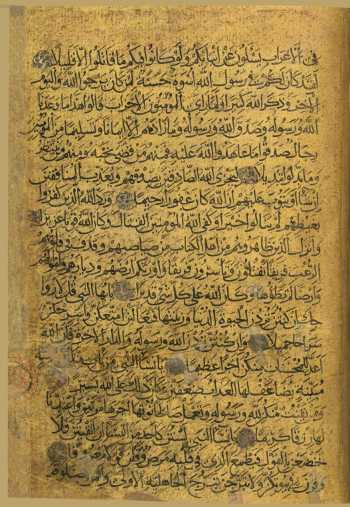 في الاعراب يسئلون عن انبائكم ولو كانوا فيكم ما قاتلوا الا قليلا
لقد كان لكم في رسول الله اسوة حسنة لمن كان يرجوا الله واليوم
الآخر وذكر الله كثيرا ولما رأى المؤمنون الاحزاب قالوا هذا ما وعدنا
الله ورسوله وصدق الله ورسوله وما زادهم الا ايمانا وتسليما من المؤمنين
رجال صدقوا ما عاهدوا الله عليه فمنهم من قضى نحبه ومنهم من
وما بدلوا تبديلا ليجزي الله الصادقين بصدقهم ويعذب المنافقين
ان شاء او يتوب عليهم ان الله كان غفورا رحيما ورد الله الذين كفروا
بغيظهم لم ينالوا خيرا وكفى الله المؤمنين القتال وكان الله قويا عزيزا
وانزل الذين ظاهروهم من اهل الكتاب من صياصيهم وقذف في قلوبهم
الرعب فريقا تقتلون وتأسرون فريقا واورثكم ارضهم وديارهم واموالهم
وارضا لم تطؤها وكان الله على كل شئ قديرا يا ايها النبي قل لازوا
جك ان كنتن تردن الحيوة الدنيا وزينتها فتعالين امتعكن واسرحكن
سراحا جميلا وان كنتن تردن الله ورسوله والدار الاخرة فان الله
اعد للمحسنات منكن اجرا عظيما يا نساء النبي من يأت منكن
مبينة يضاعف لها العذاب ضعفين وكان ذلك على الله يسيرا
ومن يقنت منكن لله ورسوله وتعمل صالحا نؤتها اجرها مرتين واعتدنا
لها رزقا كريما يا نساء النبي لستن كاحد من النساء ان اتقيتن فلا
تخضعن بالقول فيطمع الذي في قلبه مرض وقلن قولا معروفا
وقرن في بيوتكن ولا تبرجن تبرج الجاهلية الاولى واقمن الصلوة